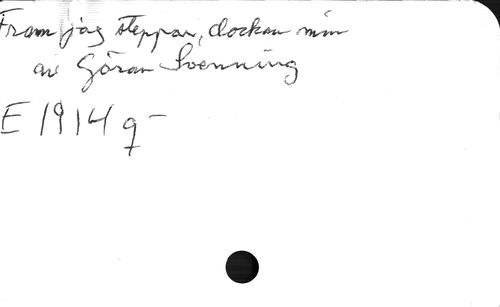 Fram jag steppar, dockan min
av Göran Svenning
E 1914 q-